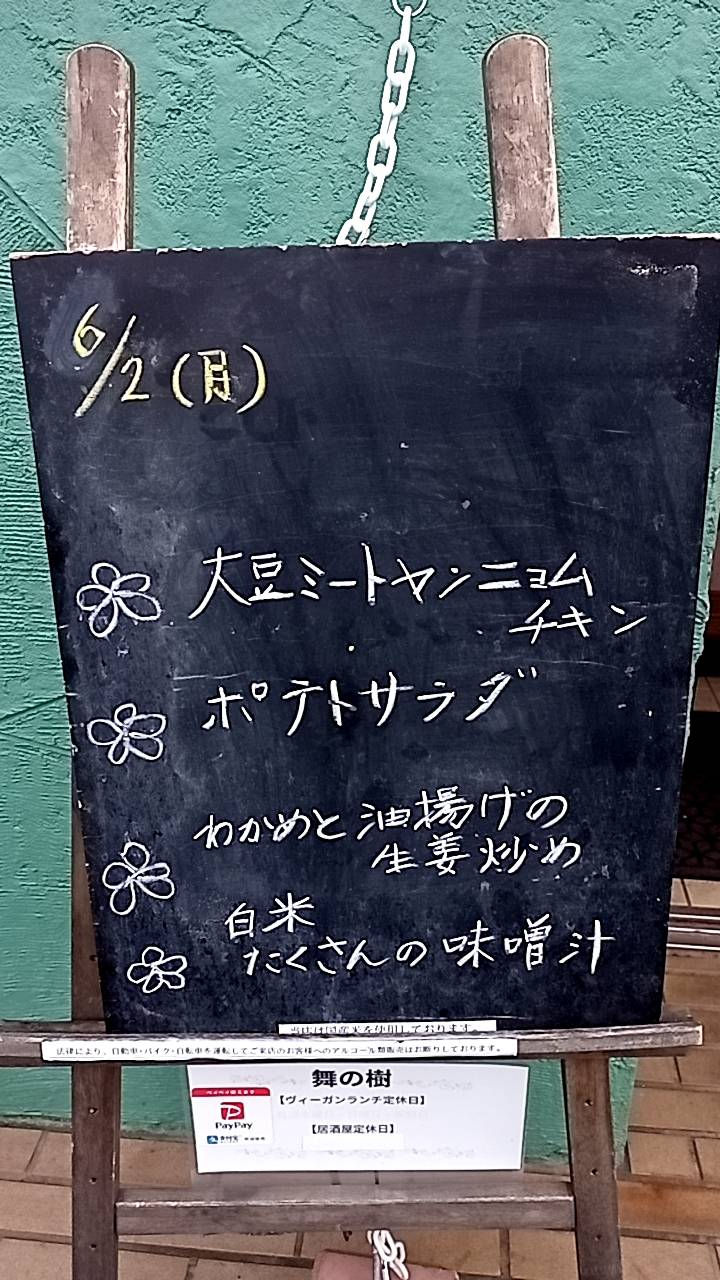 6/2(月)
大豆ミートヤンニョム
チキン
ポテトサラダ
わかめと油揚げの
生姜炒め
白米
たくさんの味噌汁
当店は国産米を使用しております。
法律により、自動車・バイク・自転車を運転してご来店のお客様へのアルコール類販売はお断りしております。
舞の樹
【ヴィーガンランチ定休日】
PayPay
【居酒屋定休日】